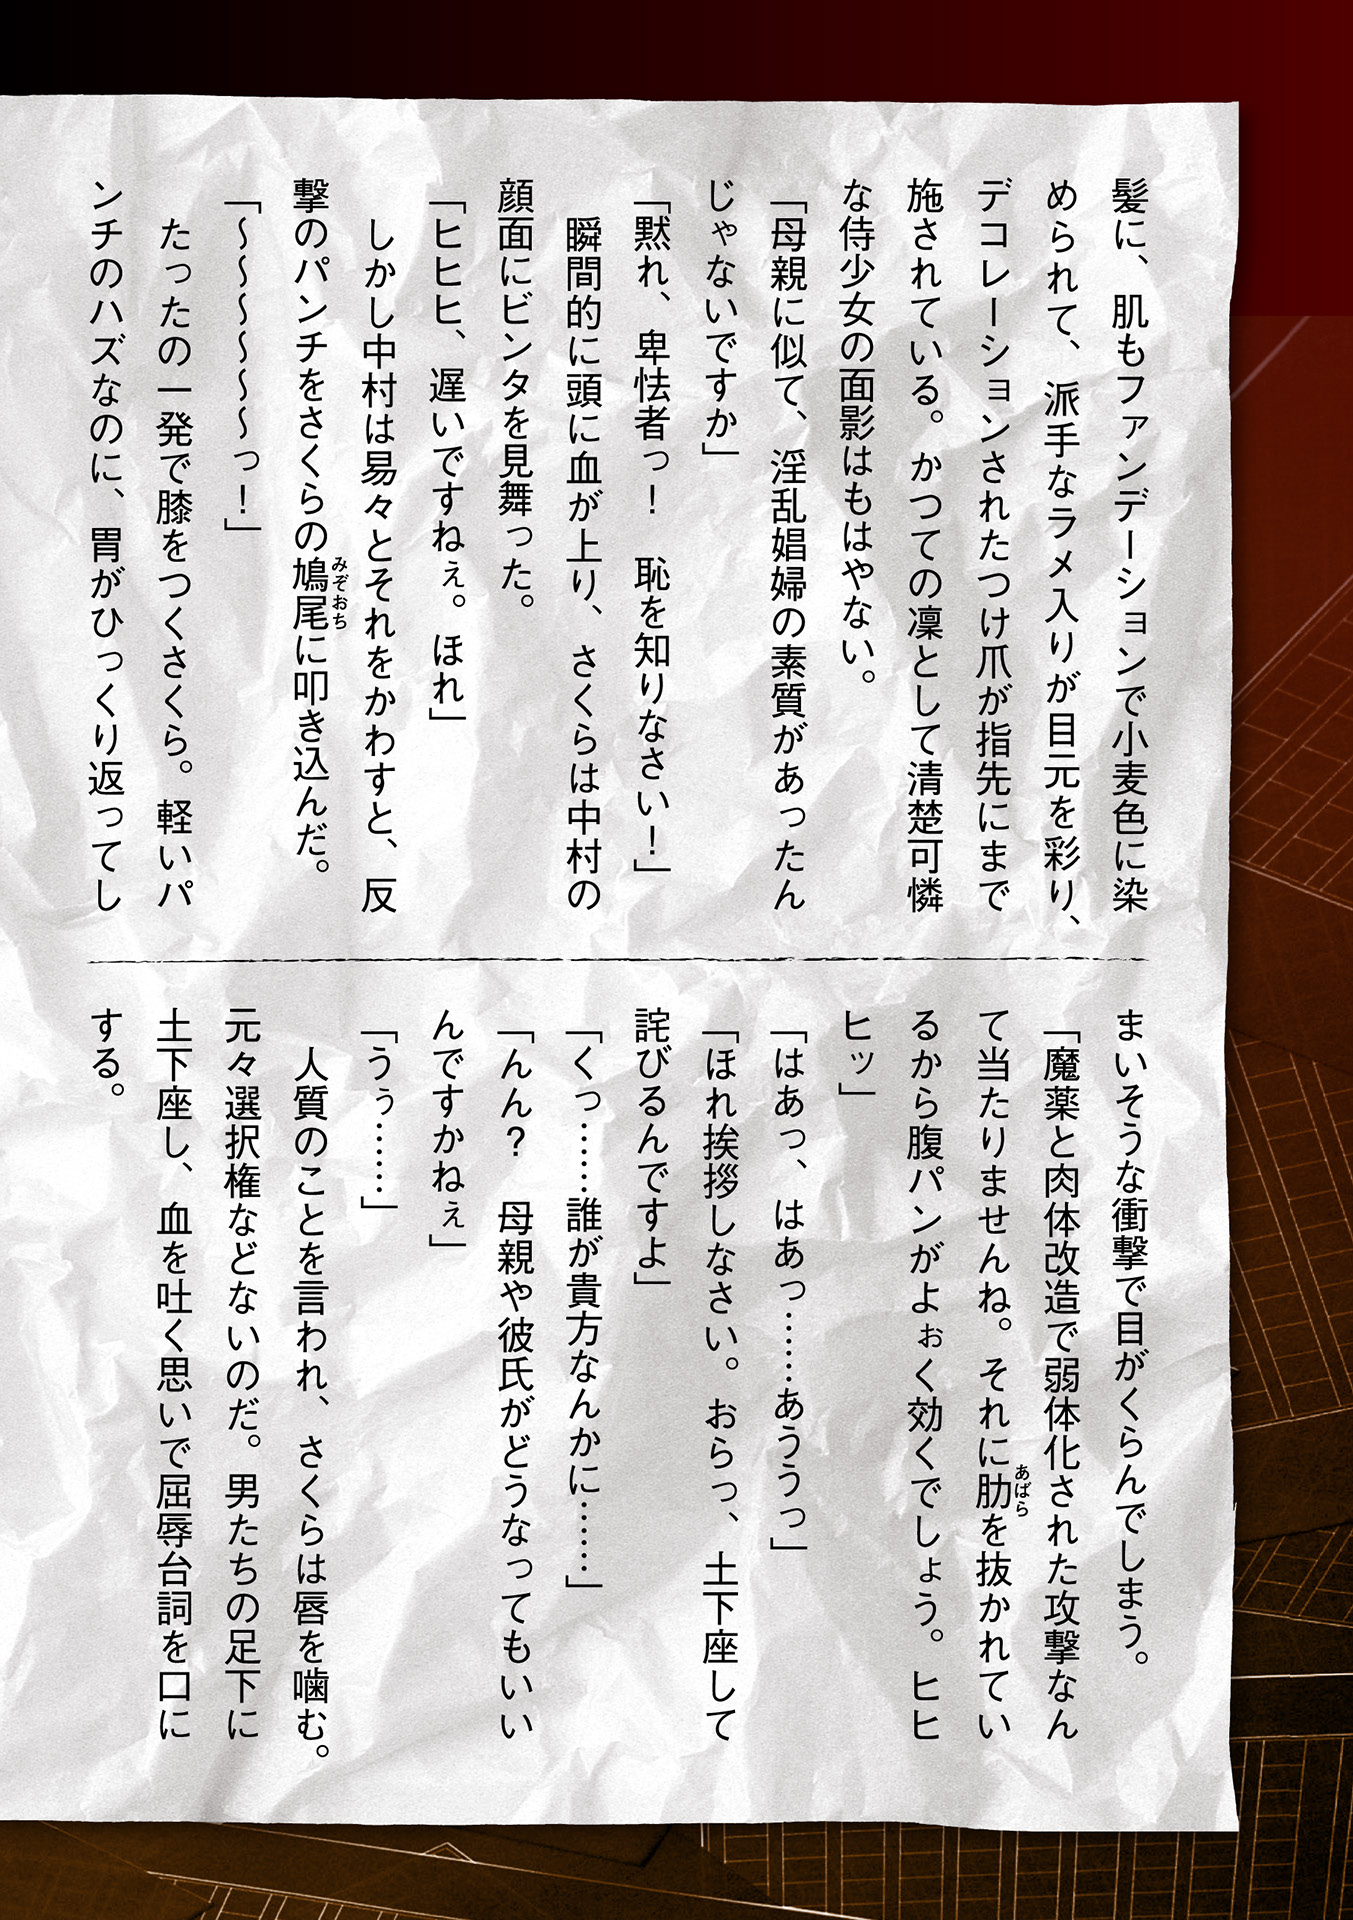 髪に、肌もファンデーションで小麦色に染
められて、派手なラメ入りが目元を彩り、
デコレーションされたつけ爪が指先にまで
施されている。かつての凛として清楚可憐
な侍少女の面影はもはやない。
「母親に似て、淫乱娼婦の素質があったん
じゃないですか」
「黙れ、卑怯者っ！　恥を知りなさい！」
　瞬間的に頭に血が上り、さくらは中村の
顔面にビンタを見舞った。
「ヒヒヒ、遅いですねぇ。ほれ」
　しかし中村は易々とそれをかわすと、反
撃のパンチをさくらの鳩尾に叩き込んだ。
みぞおち
「～～～～～～っ！」
　たったの一発で膝をつくさくら。軽いパ
ンチのハズなのに、胃がひっくり返ってし
まいそうな衝撃で目がくらんでしまう。
「魔薬と肉体改造で弱体化された攻撃なん
て当たりませんね。それに肋を抜かれてい
あばら
るから腹パンがよぉく効くでしょう。ヒヒ
ヒッ」
「はあっ、はあっ……あううっ」
「ほれ挨拶しなさい。おらっ、土下座して
詫びるんですよ」
「くっ……誰が貴方なんかに……」
「んん？　母親や彼氏がどうなってもいい
んですかねぇ」
「うぅ……」
　人質のことを言われ、さくらは唇を噛む。
元々選択権などないのだ。男たちの足下に
土下座し、血を吐く思いで屈辱台詞を口に
する。